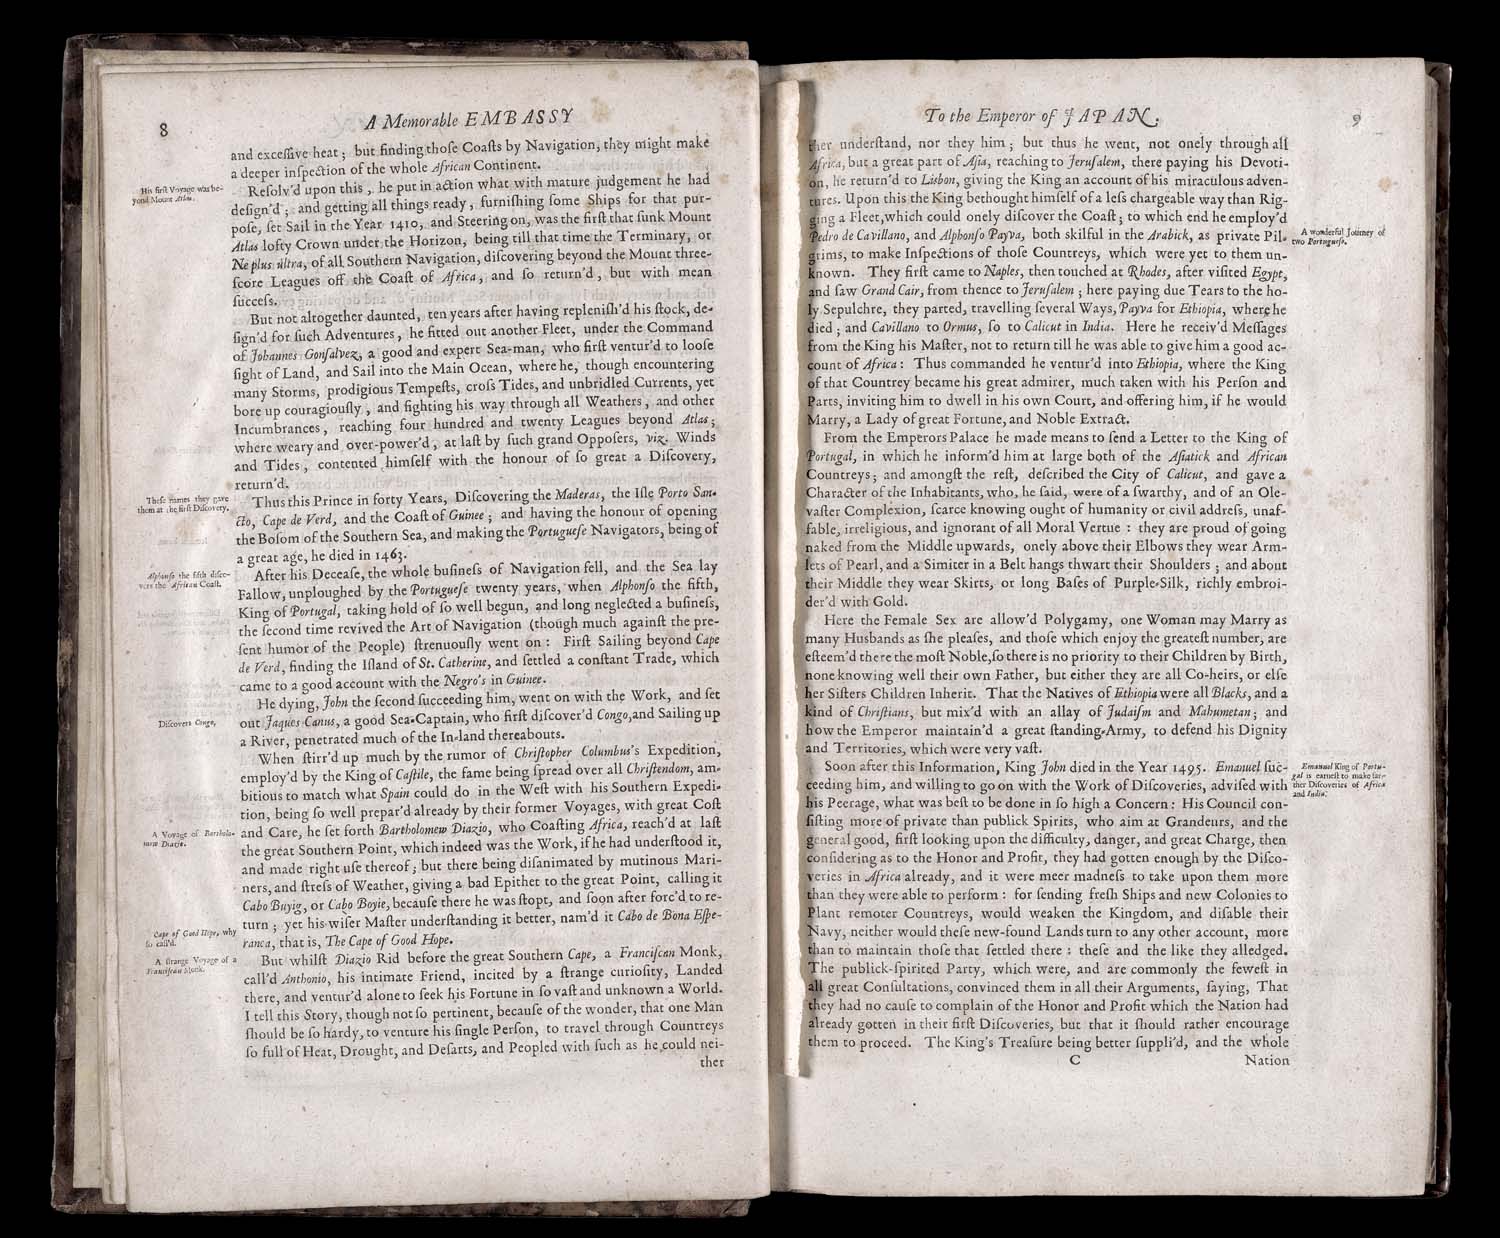 8
A Memorable EMBASSY
and exceſſive heat; but finding thoſe Coaſts by Navigation, they might make
a deeper inſpection of the whole African Continent.
His firſt Voyage was be-
yond Mount Atlas.
Reſolv'd upon this, he put in action what with mature judgement he had
deſign'd; and getting all things ready, furniſhing ſome Ships for that pur-
poſe, ſet Sail in the Year 1410, and Steering on, was the firſt that ſunk Mount
Atlas lofty Crown under the Horizon, being till that time the Terminary, or
Ne plus ultra, of all Southern Navigation, diſcovering beyond the Mount three-
ſcore Leagues off the Coaſt of Africa, and ſo return'd, but with mean
ſucceſs.
But not altogether daunted, ten years after having repleniſh'd his ſtock, de-
ſign'd for ſuch Adventures, he fitted out another Fleet, under the Command
of Johannes Gonſalvez, a good and expert Sea-man, who firſt ventur'd to looſe
ſight of Land, and Sail into the Main Ocean, where he, though encountering
many Storms, prodigious Tempeſts, croſs Tides, and unbridled Currents, yet
bore up couragiouſly, and fighting his way through all Weathers, and other
Incumbrances, reaching four hundred and twenty Leagues beyond Atlas;
where weary and over-power'd, at laſt by ſuch grand Oppoſers, viz. Winds
and Tides, contented himſelf with the honour of ſo great a Diſcovery,
return'd.
Theſe names they gave
them at the firſt Diſcovery.
Thus this Prince in forty Years, Diſcovering the Maderas, the Iſle Porto San-
cto, Cape de Verd, and the Coaſt of Guinee; and having the honour of opening
the Boſom of the Southern Sea, and making the Portugueſe Navigators, being of
a great age, he died in 1463.
Alphonſo the fifth diſco-
vers the African Coaſt.
After his Deceaſe, the whole buſineſs of Navigation fell, and the Sea lay
Fallow, unploughed by the Portugueſe twenty years, when Alphonſo the fifth,
King of Portugal, taking hold of ſo well begun, and long neglected a buſineſs,
the ſecond time revived the Art of Navigation (though much againſt the pre-
ſent humor of the People) ſtrenuouſly went on: Firſt Sailing beyond Cape
de Verd, finding the Iſland of St. Catherine, and ſettled a conſtant Trade, which
came to a good account with the Negro's in Guinee.
Diſcovers Congo,
He dying, John the ſecond ſucceeding him, went on with the Work, and ſet
out Jaques Canus, a good Sea-Captain, who firſt diſcover'd Congo, and Sailing up
a River, penetrated much of the In-land thereabouts.
When ſtirr'd up much by the rumor of Chriſtopher Columbus's Expedition,
employ'd by the King of Caſtile, the fame being ſpread over all Chriſtendom, am-
bitious to match what Spain could do in the Weſt with his Southern Expedi-
tion, being ſo well prepar'd already by their former Voyages, with great Coſt
A Voyage of Bartholo-
mew Diazio.
and Care, he ſet forth Bartholomew Diazio, who Coaſting Africa, reach'd at laſt
the great Southern Point, which indeed was the Work, if he had underſtood it,
and made right uſe thereof; but there being diſanimated by mutinous Mari-
ners, and ſtreſs of Weather, giving a bad Epithet to the great Point, calling it
Cabo Buyig, or Cabo Boyie, becauſe there he was ſtopt, and ſoon after forc'd to re-
Cape of Good Hope, why
ſo call'd.
turn; yet his wiſer Maſter underſtanding it better, nam'd it Cabo de Bona Eſpe-
ranca, that is, The Cape of Good Hope.
A ſtrange Voyage of a
Franciſcan Monk.
But whilſt Diazio Rid before the great Southern Cape, a Franciſcan Monk,
call'd Anthonio, his intimate Friend, incited by a ſtrange curioſity, Landed
there, and ventur'd alone to ſeek his Fortune in ſo vaſt and unknown a World.
I tell this Story, though not ſo pertinent, becauſe of the wonder, that one Man
ſhould be ſo hardy, to venture his ſingle Perſon, to travel through Countreys
ſo full of Heat, Drought, and Deſarts, and Peopled with ſuch as he could nei-
ther
To the Emperor of JAPAN.
9
ther underſtand, nor they him; but thus he went, not onely through all
Africa, but a great part of Aſia, reaching to Jeruſalem, there paying his Devoti-
on, he return'd to Lisbon, giving the King an account of his miraculous adven-
tures. Upon this the King bethought himſelf of a leſs chargeable way than Rig-
ging a Fleet, which could onely diſcover the Coaſt; to which end he employ'd
Pedro de Cavillano, and Alphonſo Payva, both skilful in the Arabick, as private Pil-
A wonderful Journey of
two Portugueſe.
grims, to make Inſpections of thoſe Countreys, which were yet to them un-
known. They firſt came to Naples, then touched at Rhodes, after viſited Egypt,
and ſaw Grand Cair, from thence to Jeruſalem; here paying due Tears to the ho-
ly Sepulchre, they parted, travelling ſeveral Ways, Payva for Ethiopia, where he
died; and Cavillano to Ormus, ſo to Calicut in India. Here he receiv'd Meſſages
from the King his Maſter, not to return till he was able to give him a good ac-
count of Africa: Thus commanded he ventur'd into Ethiopia, where the King
of that Countrey became his great admirer, much taken with his Perſon and
Parts, inviting him to dwell in his own Court, and offering him, if he would
Marry, a Lady of great Fortune, and Noble Extract.
From the Emperors Palace he made means to ſend a Letter to the King of
Portugal, in which he inform'd him at large both of the Aſiatick and African
Countreys; and amongſt the reſt, deſcribed the City of Calicut, and gave a
Character of the Inhabitants, who, he ſaid, were of a ſwarthy, and of an Ole-
vaſter Complexion, ſcarce knowing ought of humanity or civil addreſs, unaf-
fable, irreligious, and ignorant of all Moral Vertue: they are proud of going
naked from the Middle upwards, onely above their Elbows they wear Arm-
lets of Pearl, and a Simiter in a Belt hangs thwart their Shoulders; and about
their Middle they wear Skirts, or long Baſes of Purple-Silk, richly embroi-
der'd with Gold.
Here the Female Sex are allow'd Polygamy, one Woman may Marry as
many Husbands as ſhe pleaſes, and thoſe which enjoy the greateſt number, are
eſteem'd there the moſt Noble, ſo there is no priority to their Children by Birth,
none knowing well their own Father, but either they are all Co-heirs, or elſe
her Siſters Children Inherit. That the Natives of Ethiopia were all Blacks, and a
kind of Chriſtians, but mix'd with an allay of Judaiſm and Mahumetan; and
how the Emperor maintain'd a great ſtanding-Army, to defend his Dignity
and Territories, which were very vaſt.
Soon after this Information, King John died in the Year 1495. Emanuel ſuc-
Emanuel King of Portu-
gal is earneſt to make fur-
ther Diſcoveries of Africa
and India.
ceeding him, and willing to go on with the Work of Diſcoveries, adviſed with
his Peerage, what was beſt to be done in ſo high a Concern: His Council con-
ſiſting more of private than publick Spirits, who aim at Grandeurs, and the
general good, firſt looking upon the difficulty, danger, and great Charge, then
conſidering as to the Honor and Profit, they had gotten enough by the Diſco-
veries in Africa already, and it were meer madneſs to take upon them more
than they were able to perform: for ſending freſh Ships and new Colonies to
Plant remoter Countreys, would weaken the Kingdom, and diſable their
Navy, neither would theſe new-found Lands turn to any other account, more
than to maintain thoſe that ſettled there: theſe and the like they alledged.
The publick-ſpirited Party, which were, and are commonly the feweſt in
all great Conſultations, convinced them in all their Arguments, ſaying, That
they had no cauſe to complain of the Honor and Profit which the Nation had
already gotten in their firſt Diſcoveries, but that it ſhould rather encourage
them to proceed. The King's Treaſure being better ſuppli'd, and the whole
C
Nation